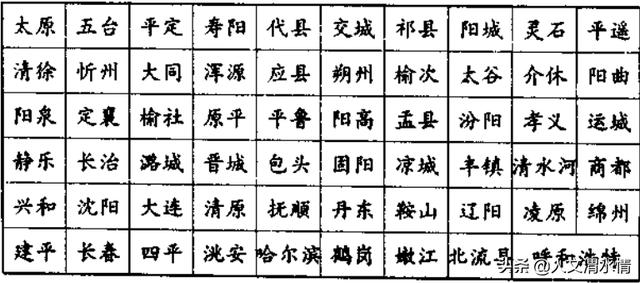 太原 五台 平定 寿阳 代县 交城 祁县 阳城 灵石 平遥
清徐 忻州 大同 浑源 应县 朔州 榆次 太谷 介休 阳曲
阳泉 定襄 榆社 原平 平鲁 阳高 孟县 汾阳 孝义 运城
静乐 长治 潞城 晋城 包头 固阳 凉城 丰镇 清水河 商都
兴和 沈阳 大连 清原 抚顺 丹东 鞍山 辽阳 凌原 绵州
建平 长春 四平 洮安 哈尔滨 鹤岗 嫩江 北流县 呼和浩特
头条 @人文渭水情